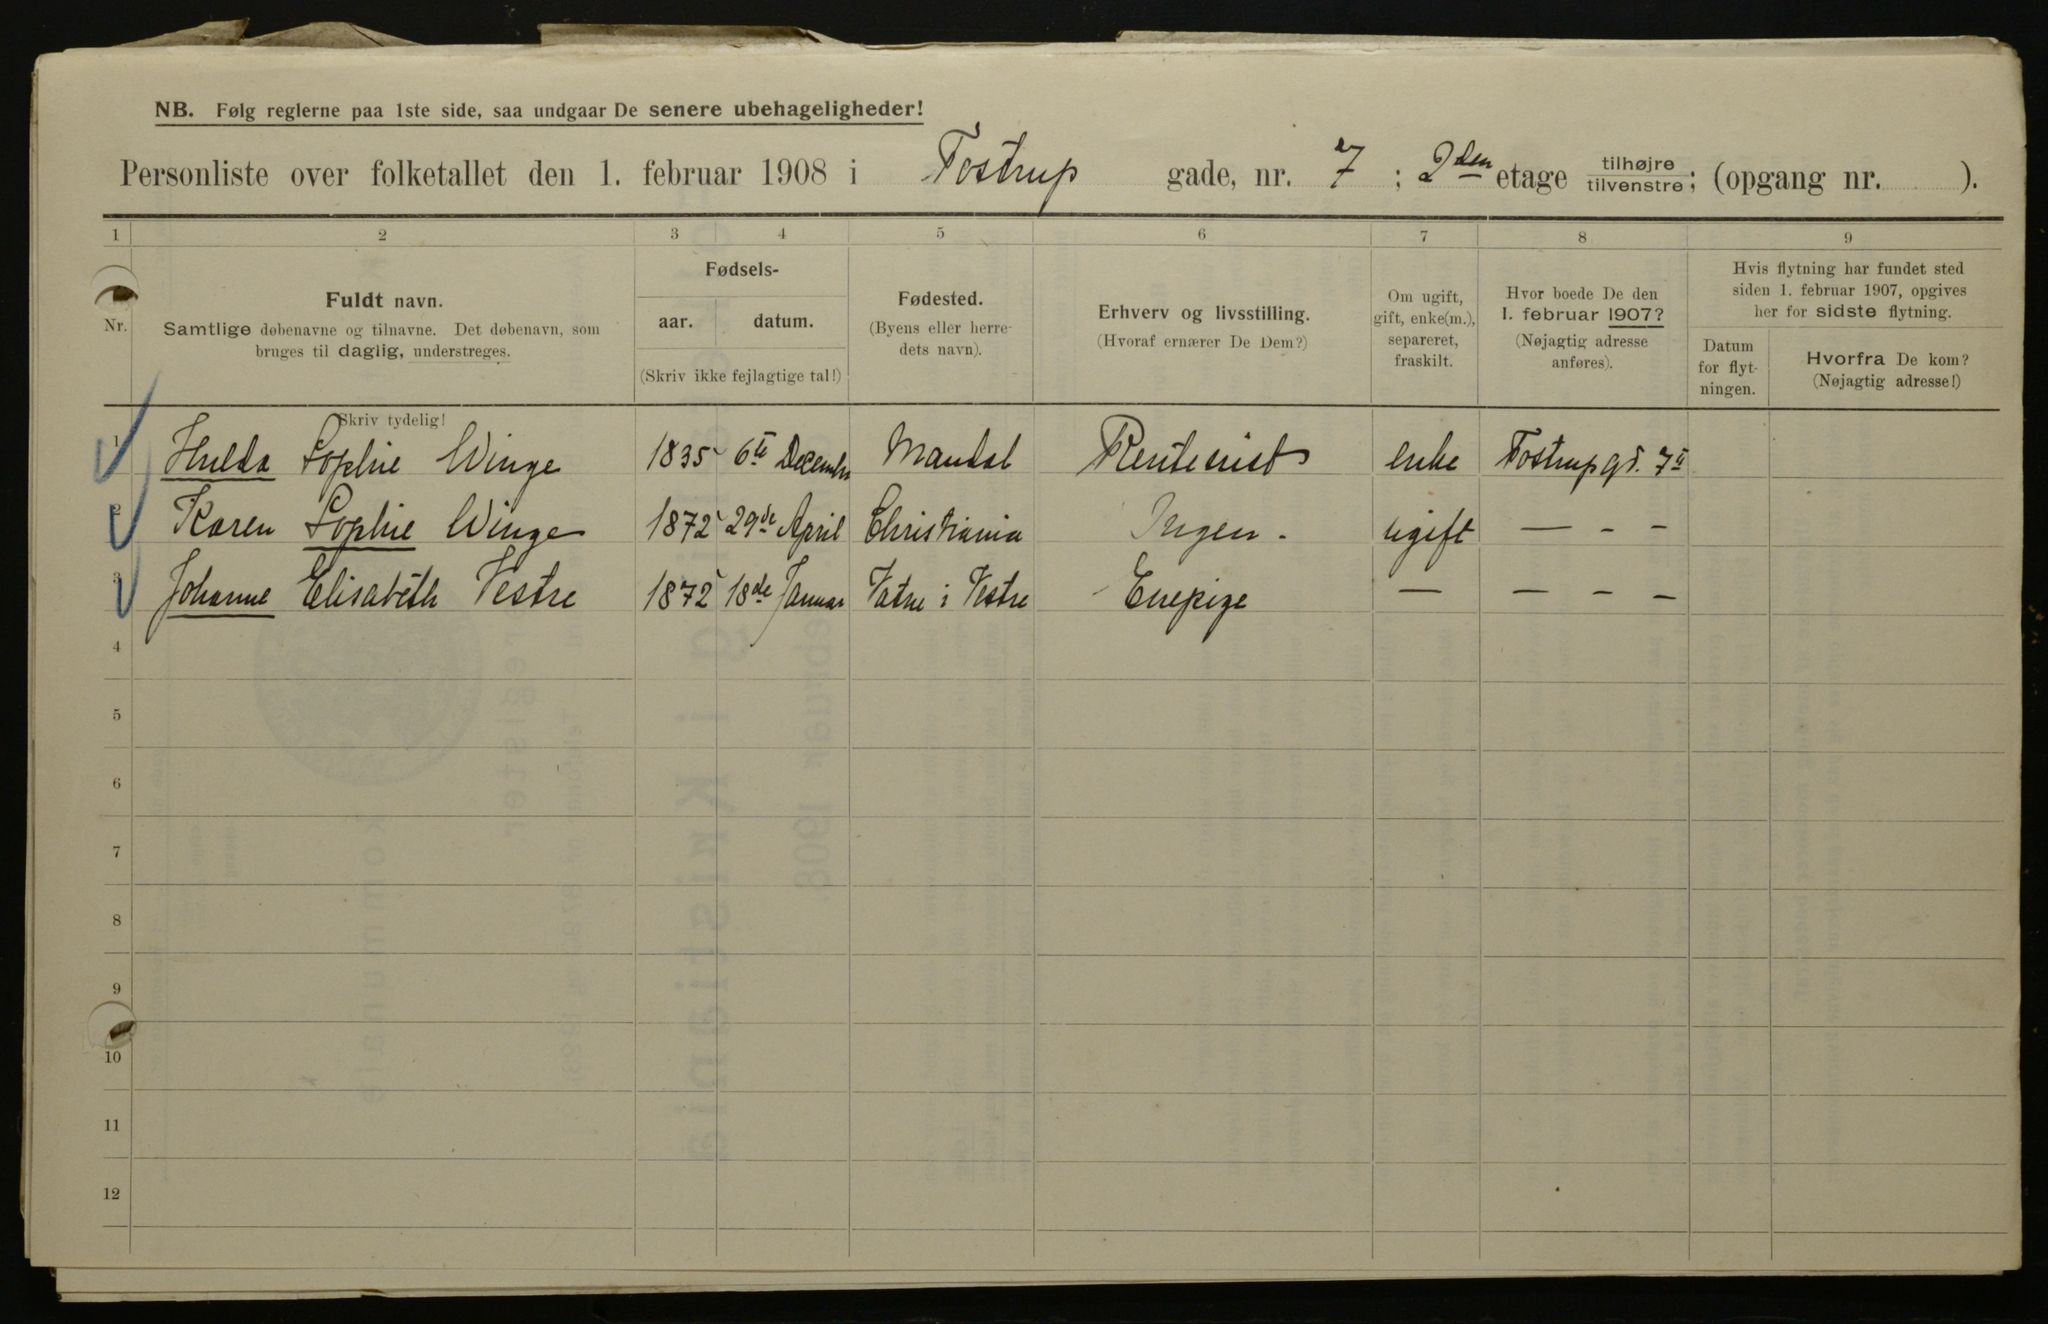 NB. Følg reglerne paa 1ste side, saa undgaar De senere ubehageligheder!
Personliste over folketallet den 1. februar 1908 i Tostrup gade, nr. 7 ; 2den etage tilhøjre tilvenstre; (opgang nr. ).
1 2 3 4 5 6 7 8 9
Nr.
Fuldt navn.
Samtlige døbenavne og tilnavne. Det døbenavn, som
bruges til daglig, understreges.
Fødsels-
aar. datum.
(Skriv ikke fejlagtige tal!)
Fødested.
(Byens eller herre-
dets navn).
Erhverv og livsstilling.
(Hvoraf ernærer De Dem?)
Om ugift,
gift, enke(m.),
separeret,
fraskilt.
Hvor boede De den
1. februar 1907?
(Nøjagtig adresse
anføres).
Hvis flytning har fundet sted
siden 1. februar 1907, opgives
her for sidste flytning.
Datum
for flyt-
ningen.
Hvorfra De kom?
(Nøjagtig adresse!)
Skriv tydelig!
1 Hulda Sophie Winge 1835 6te Decembr Mandal Rentenist enke Tostrupgd. 7II
2 Karen Sophie Winge 1872 29de April Christiania Ingen - ugift — - -
3 Johanne Elisabeth Vestre 1872 18de Januar Vatne i Vestre Enepige — — - -
4
5
6
7
8
9
10
11
12